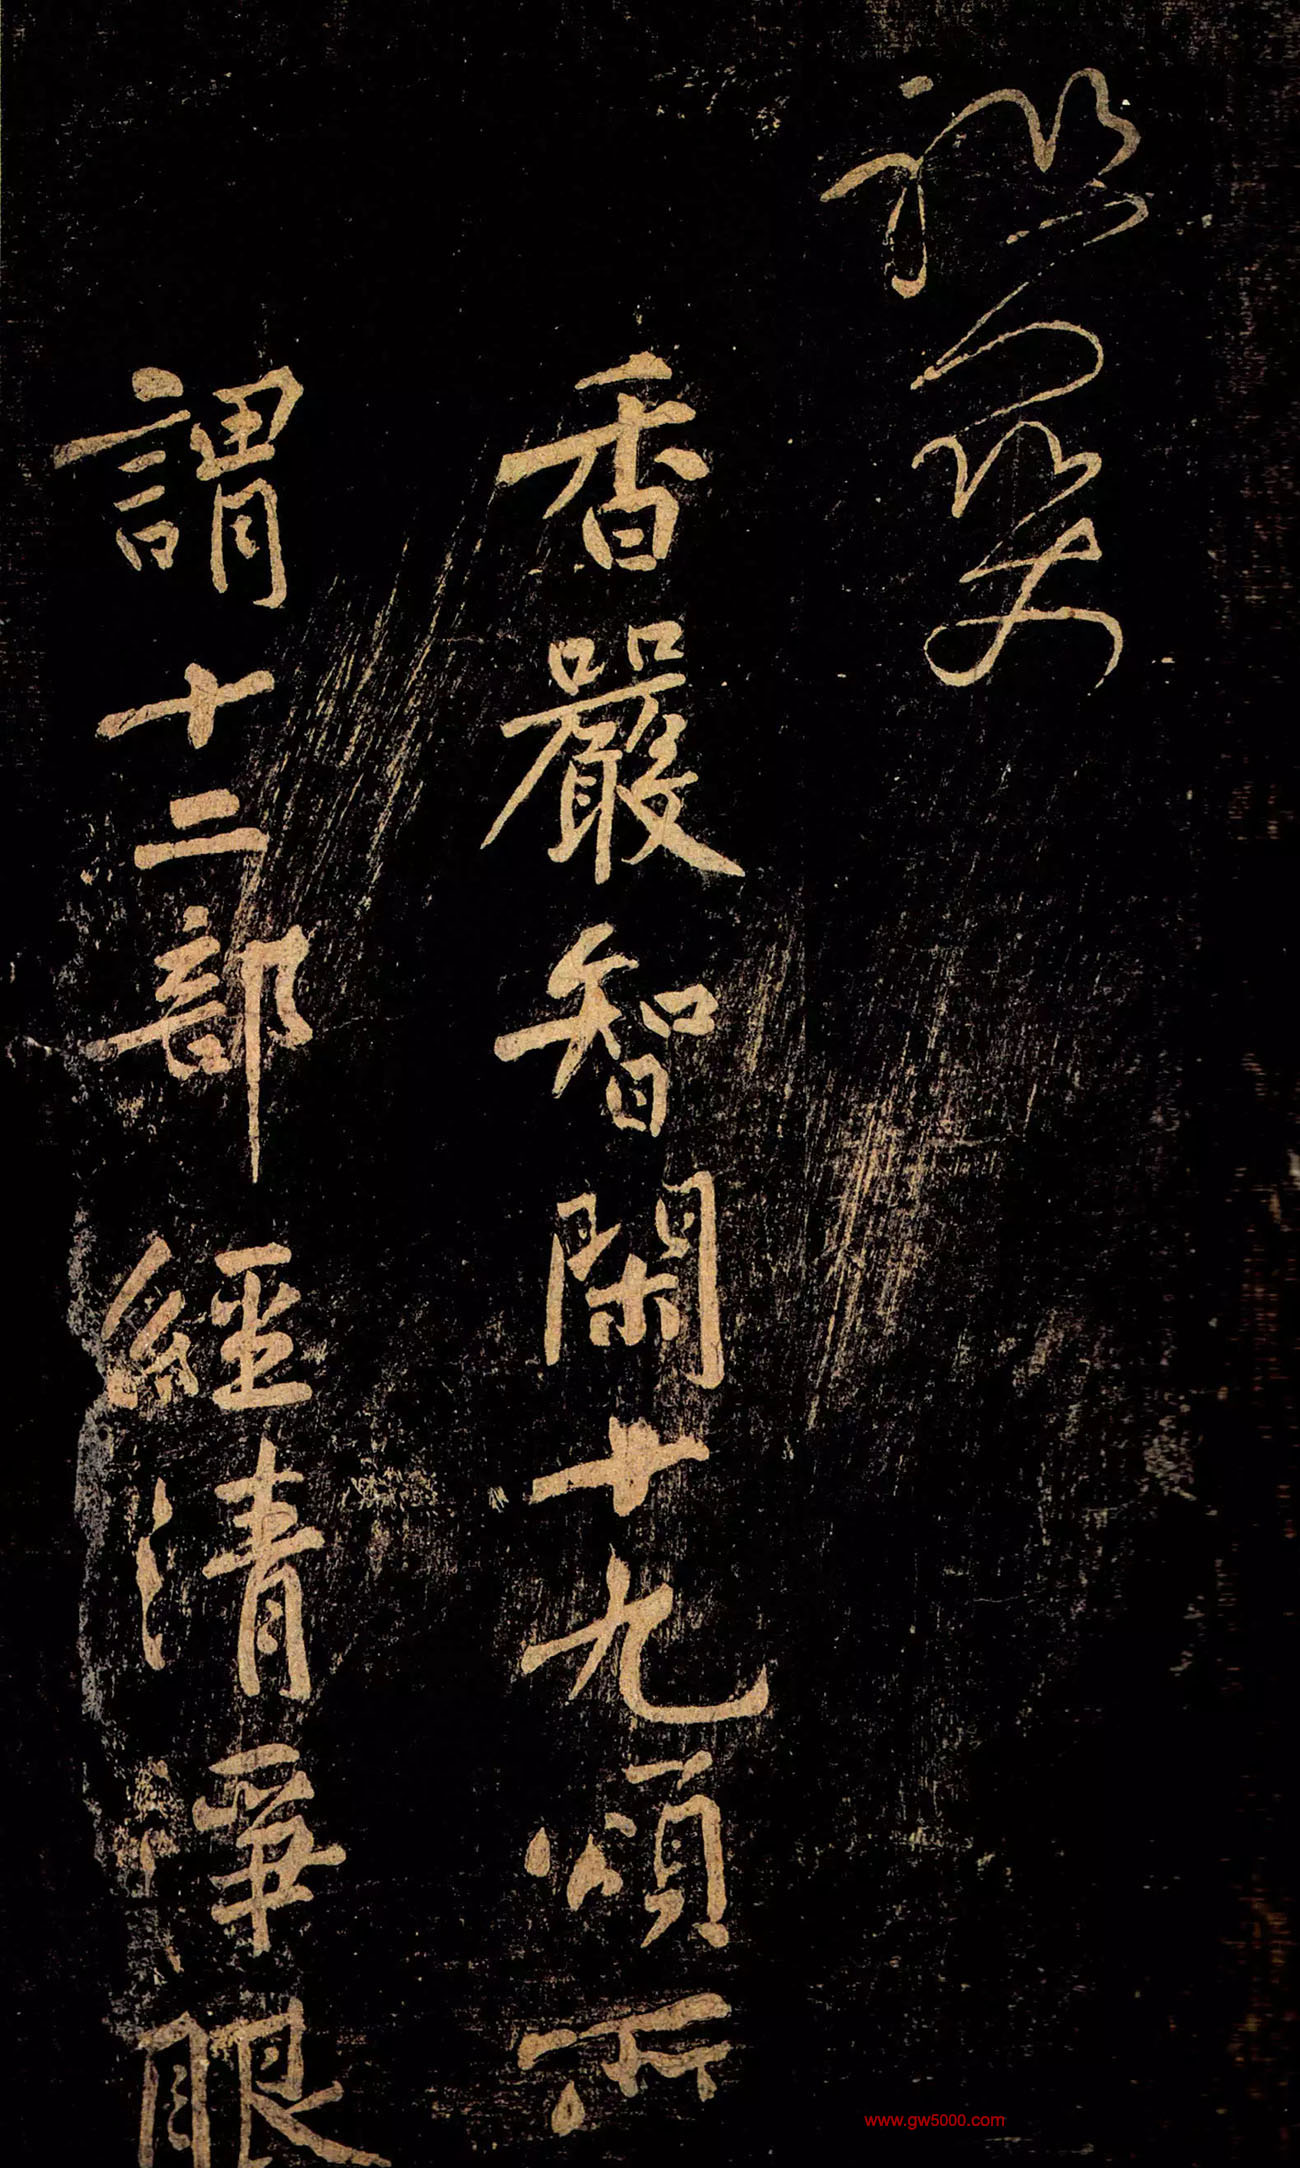 香嚴智閑十九頌所
謂十二部經清淨眼
www.gw5000.com